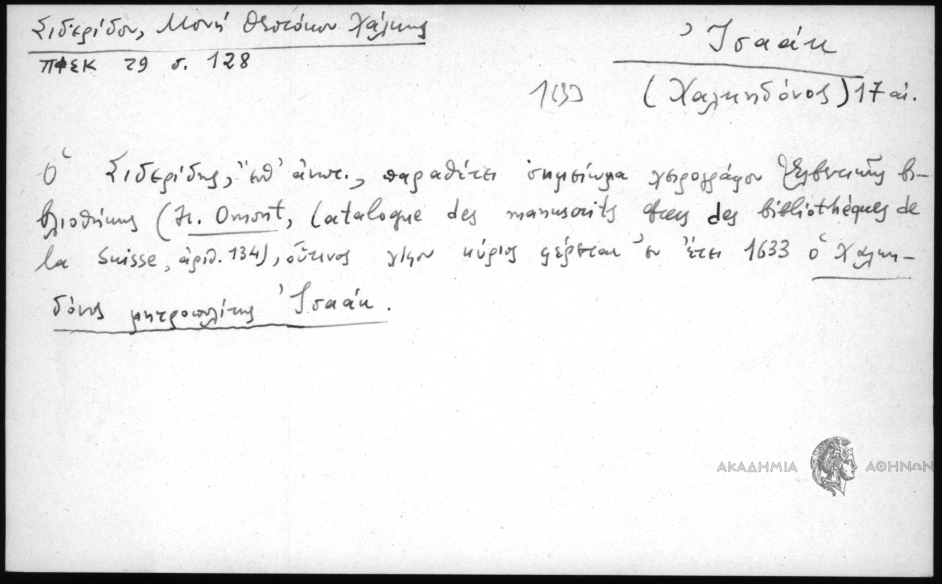 Σιδερίδου, Μονή Θεοτόκου Χάλκης
ΠΦΣΚ 29 σ. 128
Ἰσαάκ
1633 (Χαλκηδόνος) 17 αἰ.
Ὁ Σιδερίδης, ἔνθ' ἀνωτ., παραθέτει σημείωμα χειρογράφου Ἑλβετικῆς βι-
βλιοθήκης (H. Omont, Catalogue des manuscrits grecs des bibliothèques de
la Suisse, ἀριθ. 134), οὗτινος κύριος φέρεται ἐν ἔτει 1633 ὁ Χαλκη-
δόνος μητροπολίτης Ἰσαάκ.
ΑΚΑΔΗΜΙΑ ΑΘΗΝΩΝ